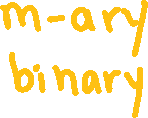 m-ary
binary